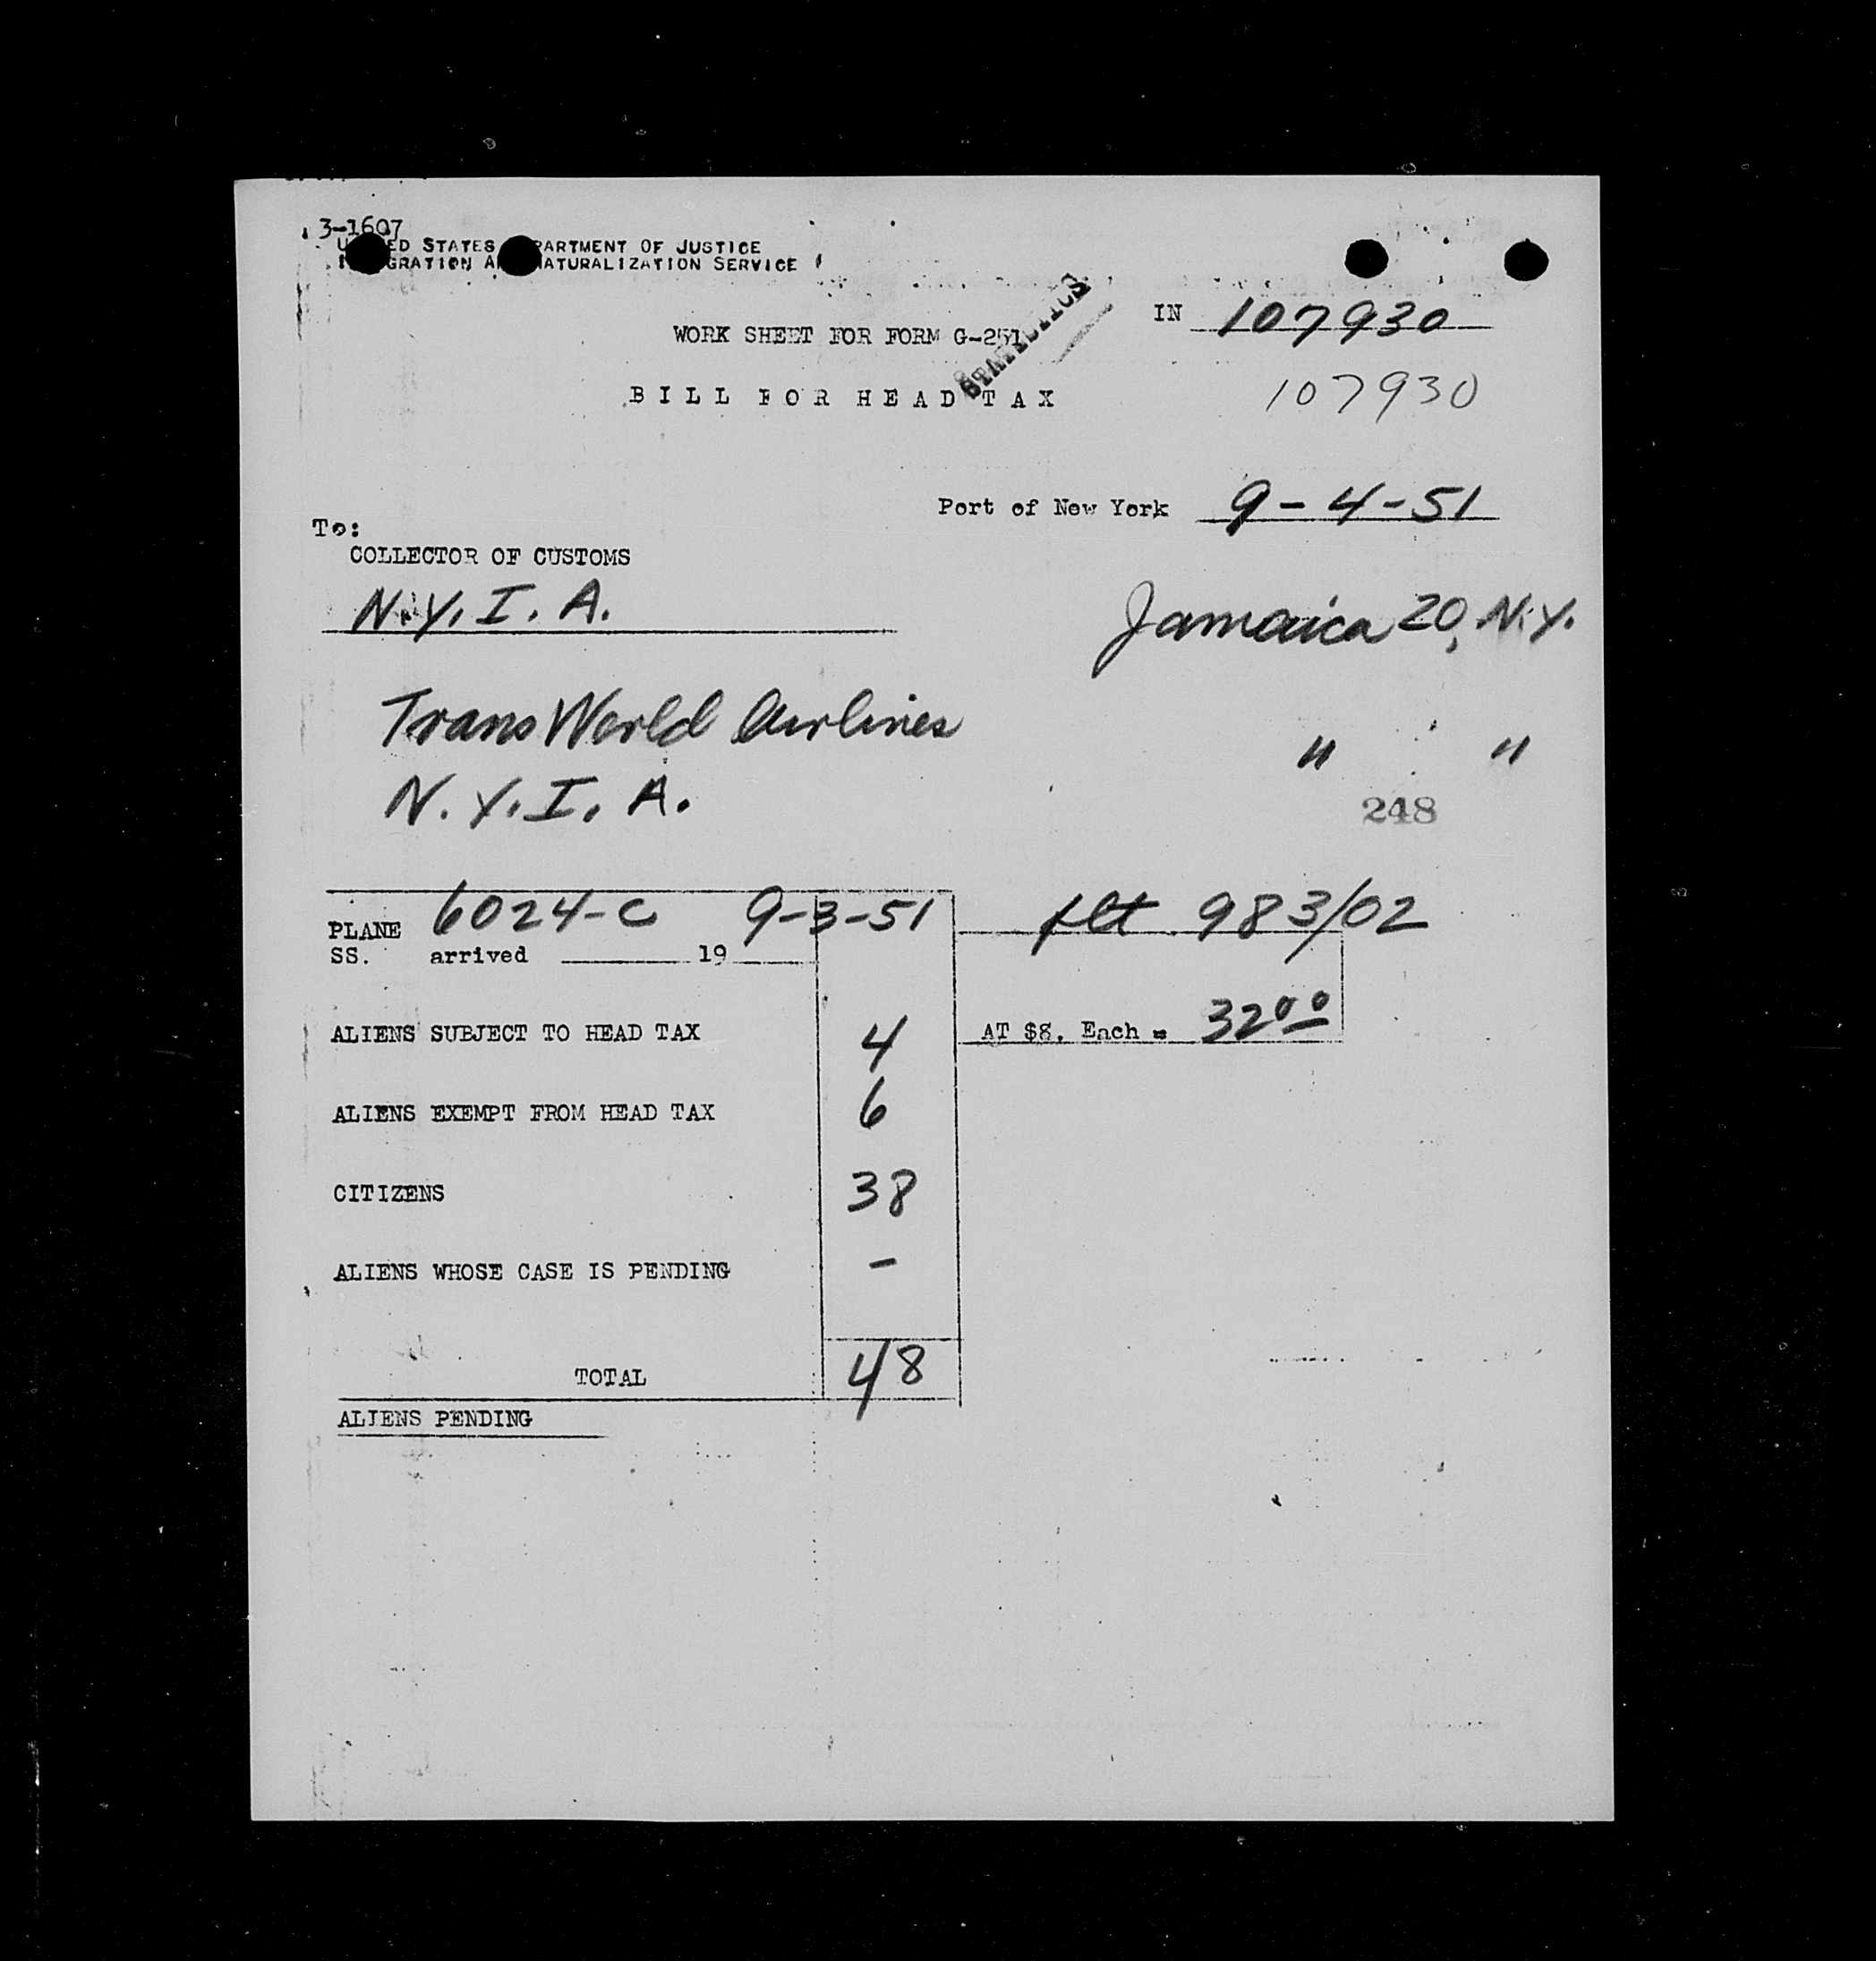 3-1607
UNITED STATES DEPARTMENT OF JUSTICE
IMMIGRATION AND NATURALIZATION SERVICE
STATISTICS
IN 107930
WORK SHEET FOR FORM G-251
BILL FOR HEAD TAX
107930
Port of New York 9-4-51
To:
COLLECTOR OF CUSTOMS
N.Y.I.A. Jamaica 20, N.Y.
Trans World Airlines " "
N.Y.I.A. 248
PLANE 6024-C 9-3-51 flt 983/02
SS. arrived 19
ALIENS SUBJECT TO HEAD TAX 4 AT $8. Each = 32 00
ALIENS EXEMPT FROM HEAD TAX 6
CITIZENS 38
ALIENS WHOSE CASE IS PENDING -
TOTAL 48
ALIENS PENDING